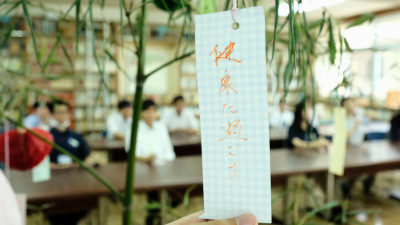 健康に過ごす